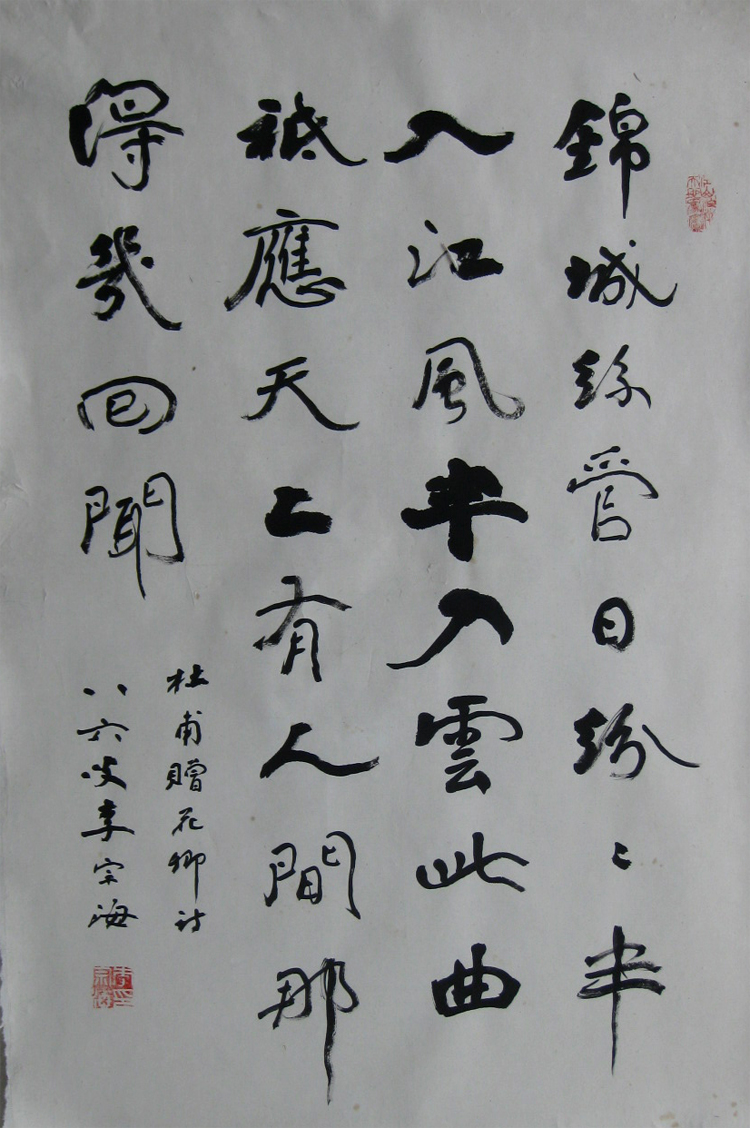 錦城絲管日紛〻半
入江風半入雲此曲
祗應天上有人間那
得幾回聞
杜甫贈花卿诗
八六叟李宗海